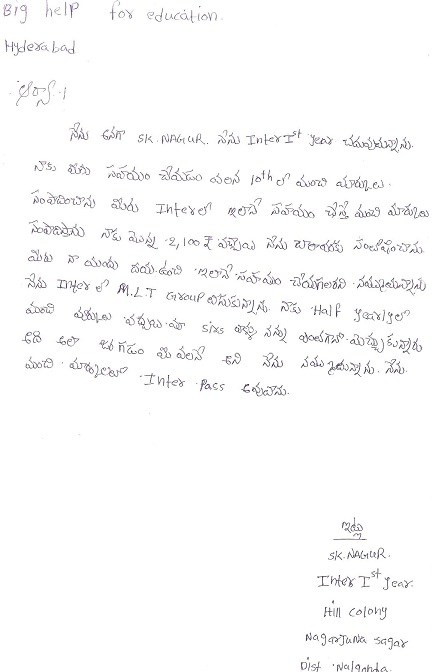 Big help for education.
Hyderabad
ఆర్యా !
నేను అనగా SK.NAGUR. నేను Inter Ist year చదువుతున్నాను.
నాకు మీరు సహాయం చేయడం వలన 10th లో మంచి మార్కులు
సంపాదించాను మీరు Inter లో ఇలానే సహాయం చేస్తే మంచి మార్కులు
సంపాదిస్తాను నాకు మొన్న 2,100 ₹ వచ్చాయి నేను చాలా సంతోషించాను
మీరు నా యందు దయ ఉంచి ఇలానే సహాయం చేయగలరని నమ్ముతున్నాను
నేను Inter లో M.L.T Group తీసుకున్నాను. నాకు Half yearly లో
మంచి మార్కులు వచ్చాయి మా సార్ నన్ను ఎంతగానో మెచ్చుకున్నారు
అది అలా జరగడం మీ వలనే అని నేను నమ్ముతున్నాను. నేను
మంచి మార్కులతో Inter Pass అవుతాను.
ఇట్లు
SK.NAGUR.
Inter Ist year.
Hill colony
Nagarjuna sagar
Dist Nalgonda.